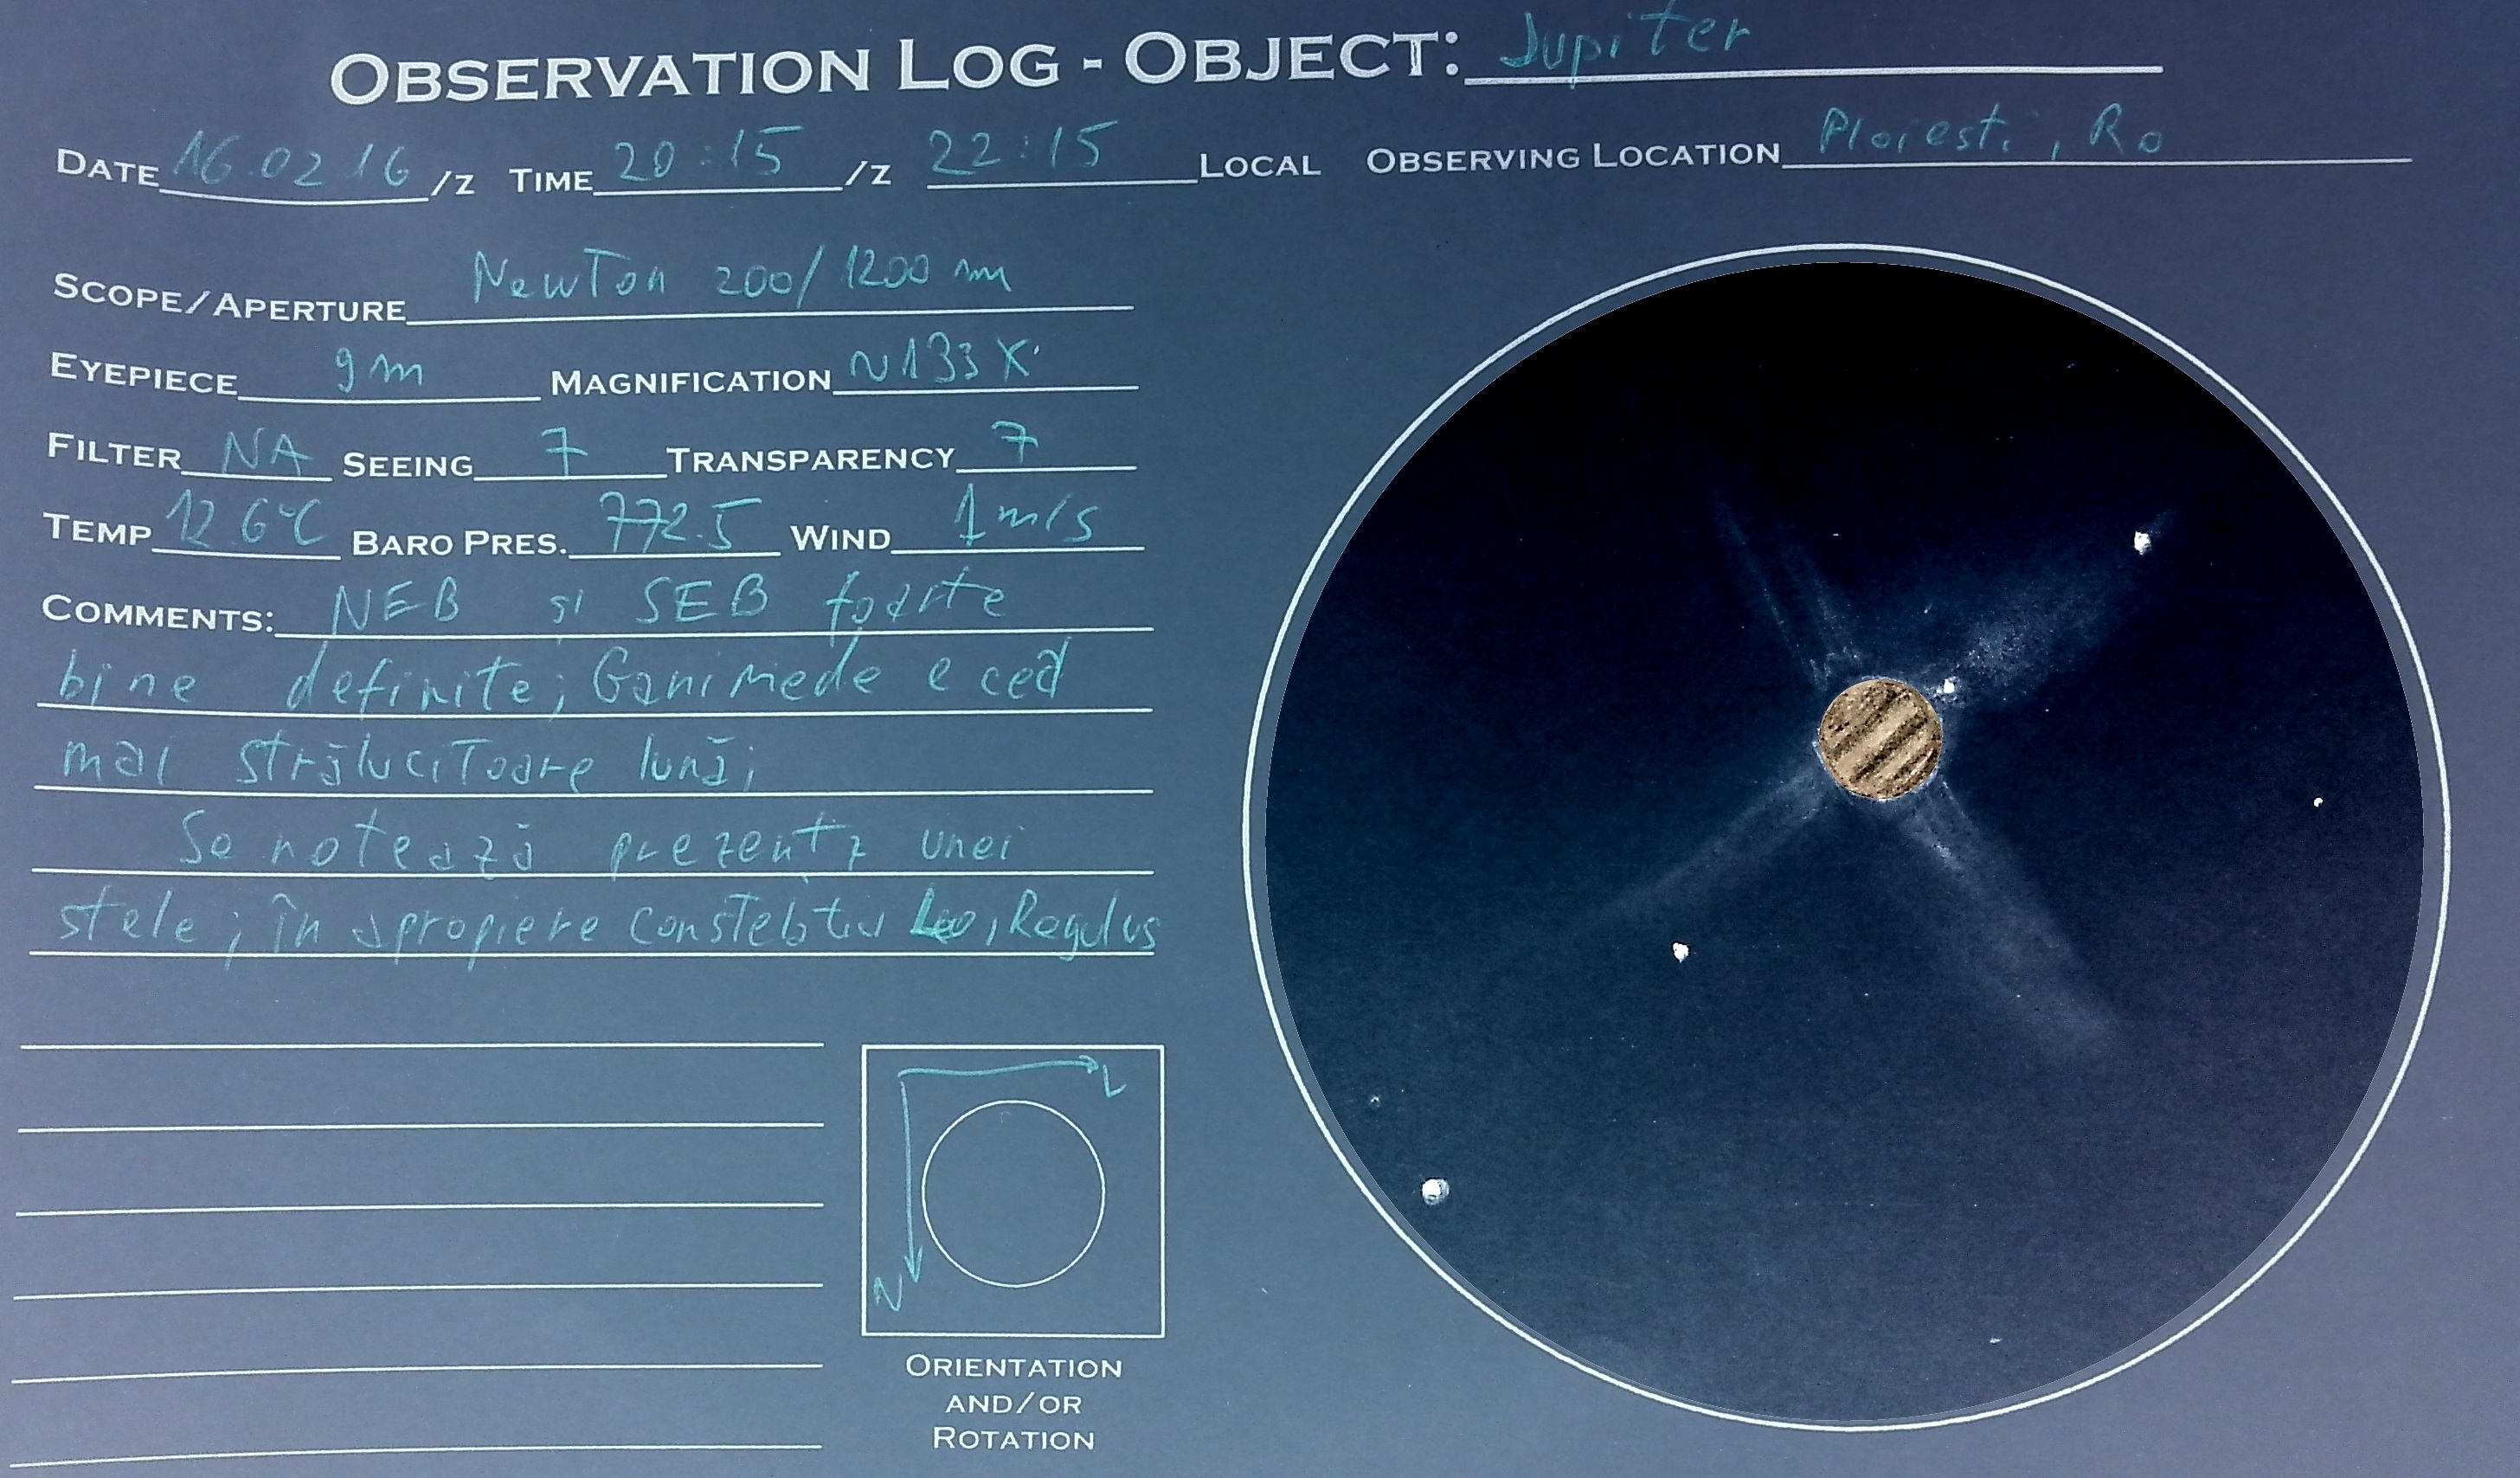 OBSERVATION LOG - OBJECT: Jupiter
DATE 16.02.16 /Z TIME 20:15 /Z 22:15 LOCAL OBSERVING LOCATION Ploiesti, Ro
SCOPE/APERTURE NewTon 200/1200 mm
EYEPIECE 9 m MAGNIFICATION ~133X
FILTER NA SEEING 7 TRANSPARENCY 7
TEMP 12.6°C BARO PRES. 772.5 WIND 1m/s
COMMENTS: NEB si SEB foarte
bine definite; Ganimede e cea
mai străluciToare lună;
Se notează prezenta unei
stele; în apropiere constelatia Leo, Regulus
L
N
ORIENTATION
AND/OR
ROTATION